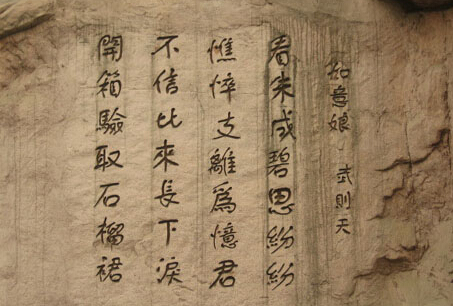 如意娘·武則天
看朱成碧思紛紛
憔悴支離爲憶君
不信比來長下淚
開箱驗取石榴裙